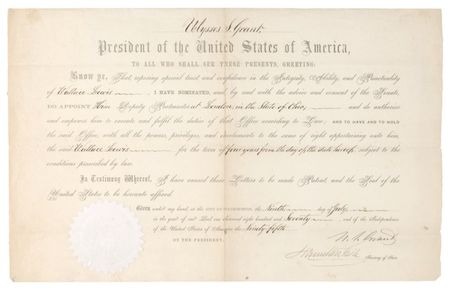 Ulysses S. Grant,
President of the United States of America,
TO ALL WHO SHALL SEE THESE PRESENTS, GREETING:
Know ye, That reposing special trust and confidence in the Integrity, Ability, and Punctuality
of Wallace Lewis I HAVE NOMINATED, and by and with the advice and consent of the Senate,
DO APPOINT Him Deputy Postmaster at London, in the State of Ohio, and do authorize
and empower him to execute and fulfil the duties of that Office according to Law; AND TO HAVE AND TO HOLD
the said Office, with all the powers, privileges, and emoluments to the same of right appertaining unto him,
the said Wallace Lewis for the term of four years from the day of the date hereof, subject to the
conditions prescribed by law.
In Testimony Whereof, I have caused these Letters to be made Patent, and the Seal of the
United States to be hereunto affixed.
Given under my hand, at the CITY OF WASHINGTON, the Ninth day of July
in the year of our Lord one thousand eight hundred and Seventy and of the Independence
of the United States of America the Ninety-fifth.
U. S. Grant
BY THE PRESIDENT,
Hamilton Fish
Secretary of State.